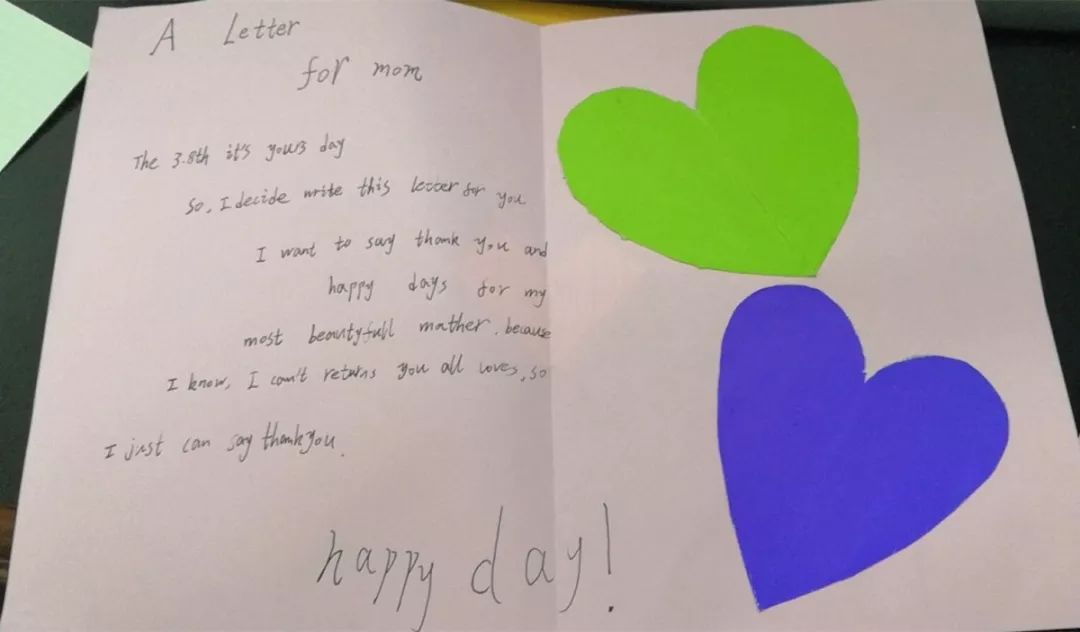 A Letter
for mom
The 3.8th it's yours day
so, I decide write this letter for you
I want to say thank you and
happy days for my
most beautyfull mather. because
I know, I can't returns you all loves, so
I just can say thankyou.
happy day!